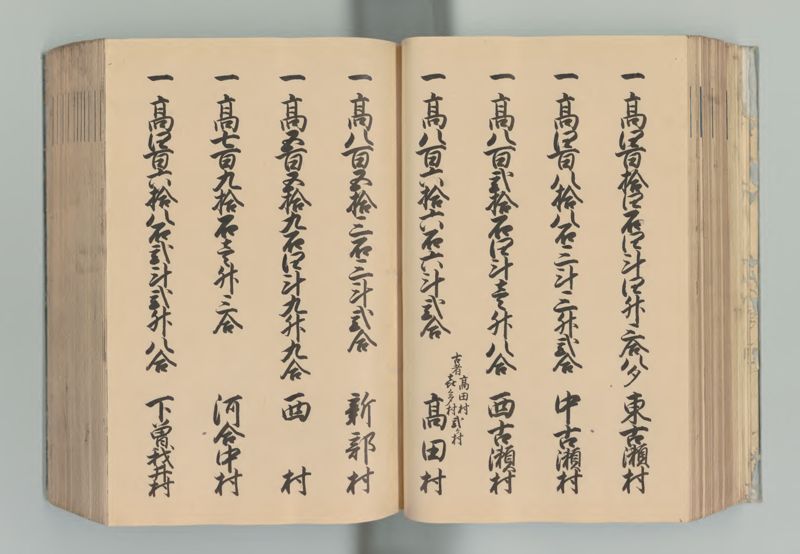 一高四百拾四石四斗四升三合八夕 東古瀬村
一高四百八拾八石三斗三升弐合 中古瀬村
一高八百弐拾石四斗壱升八合 西古瀬村
古者高田村弐ヶ村
喜多村
一高八百六拾六石六斗弐合 高田村
一高八百五拾三石三斗弐合 新部村
一高五百五拾九石四斗九升九合 西村
一高七百九拾石壱升三合 河合中村
一高四百六拾八石弐斗弐升八合 下曽我井村